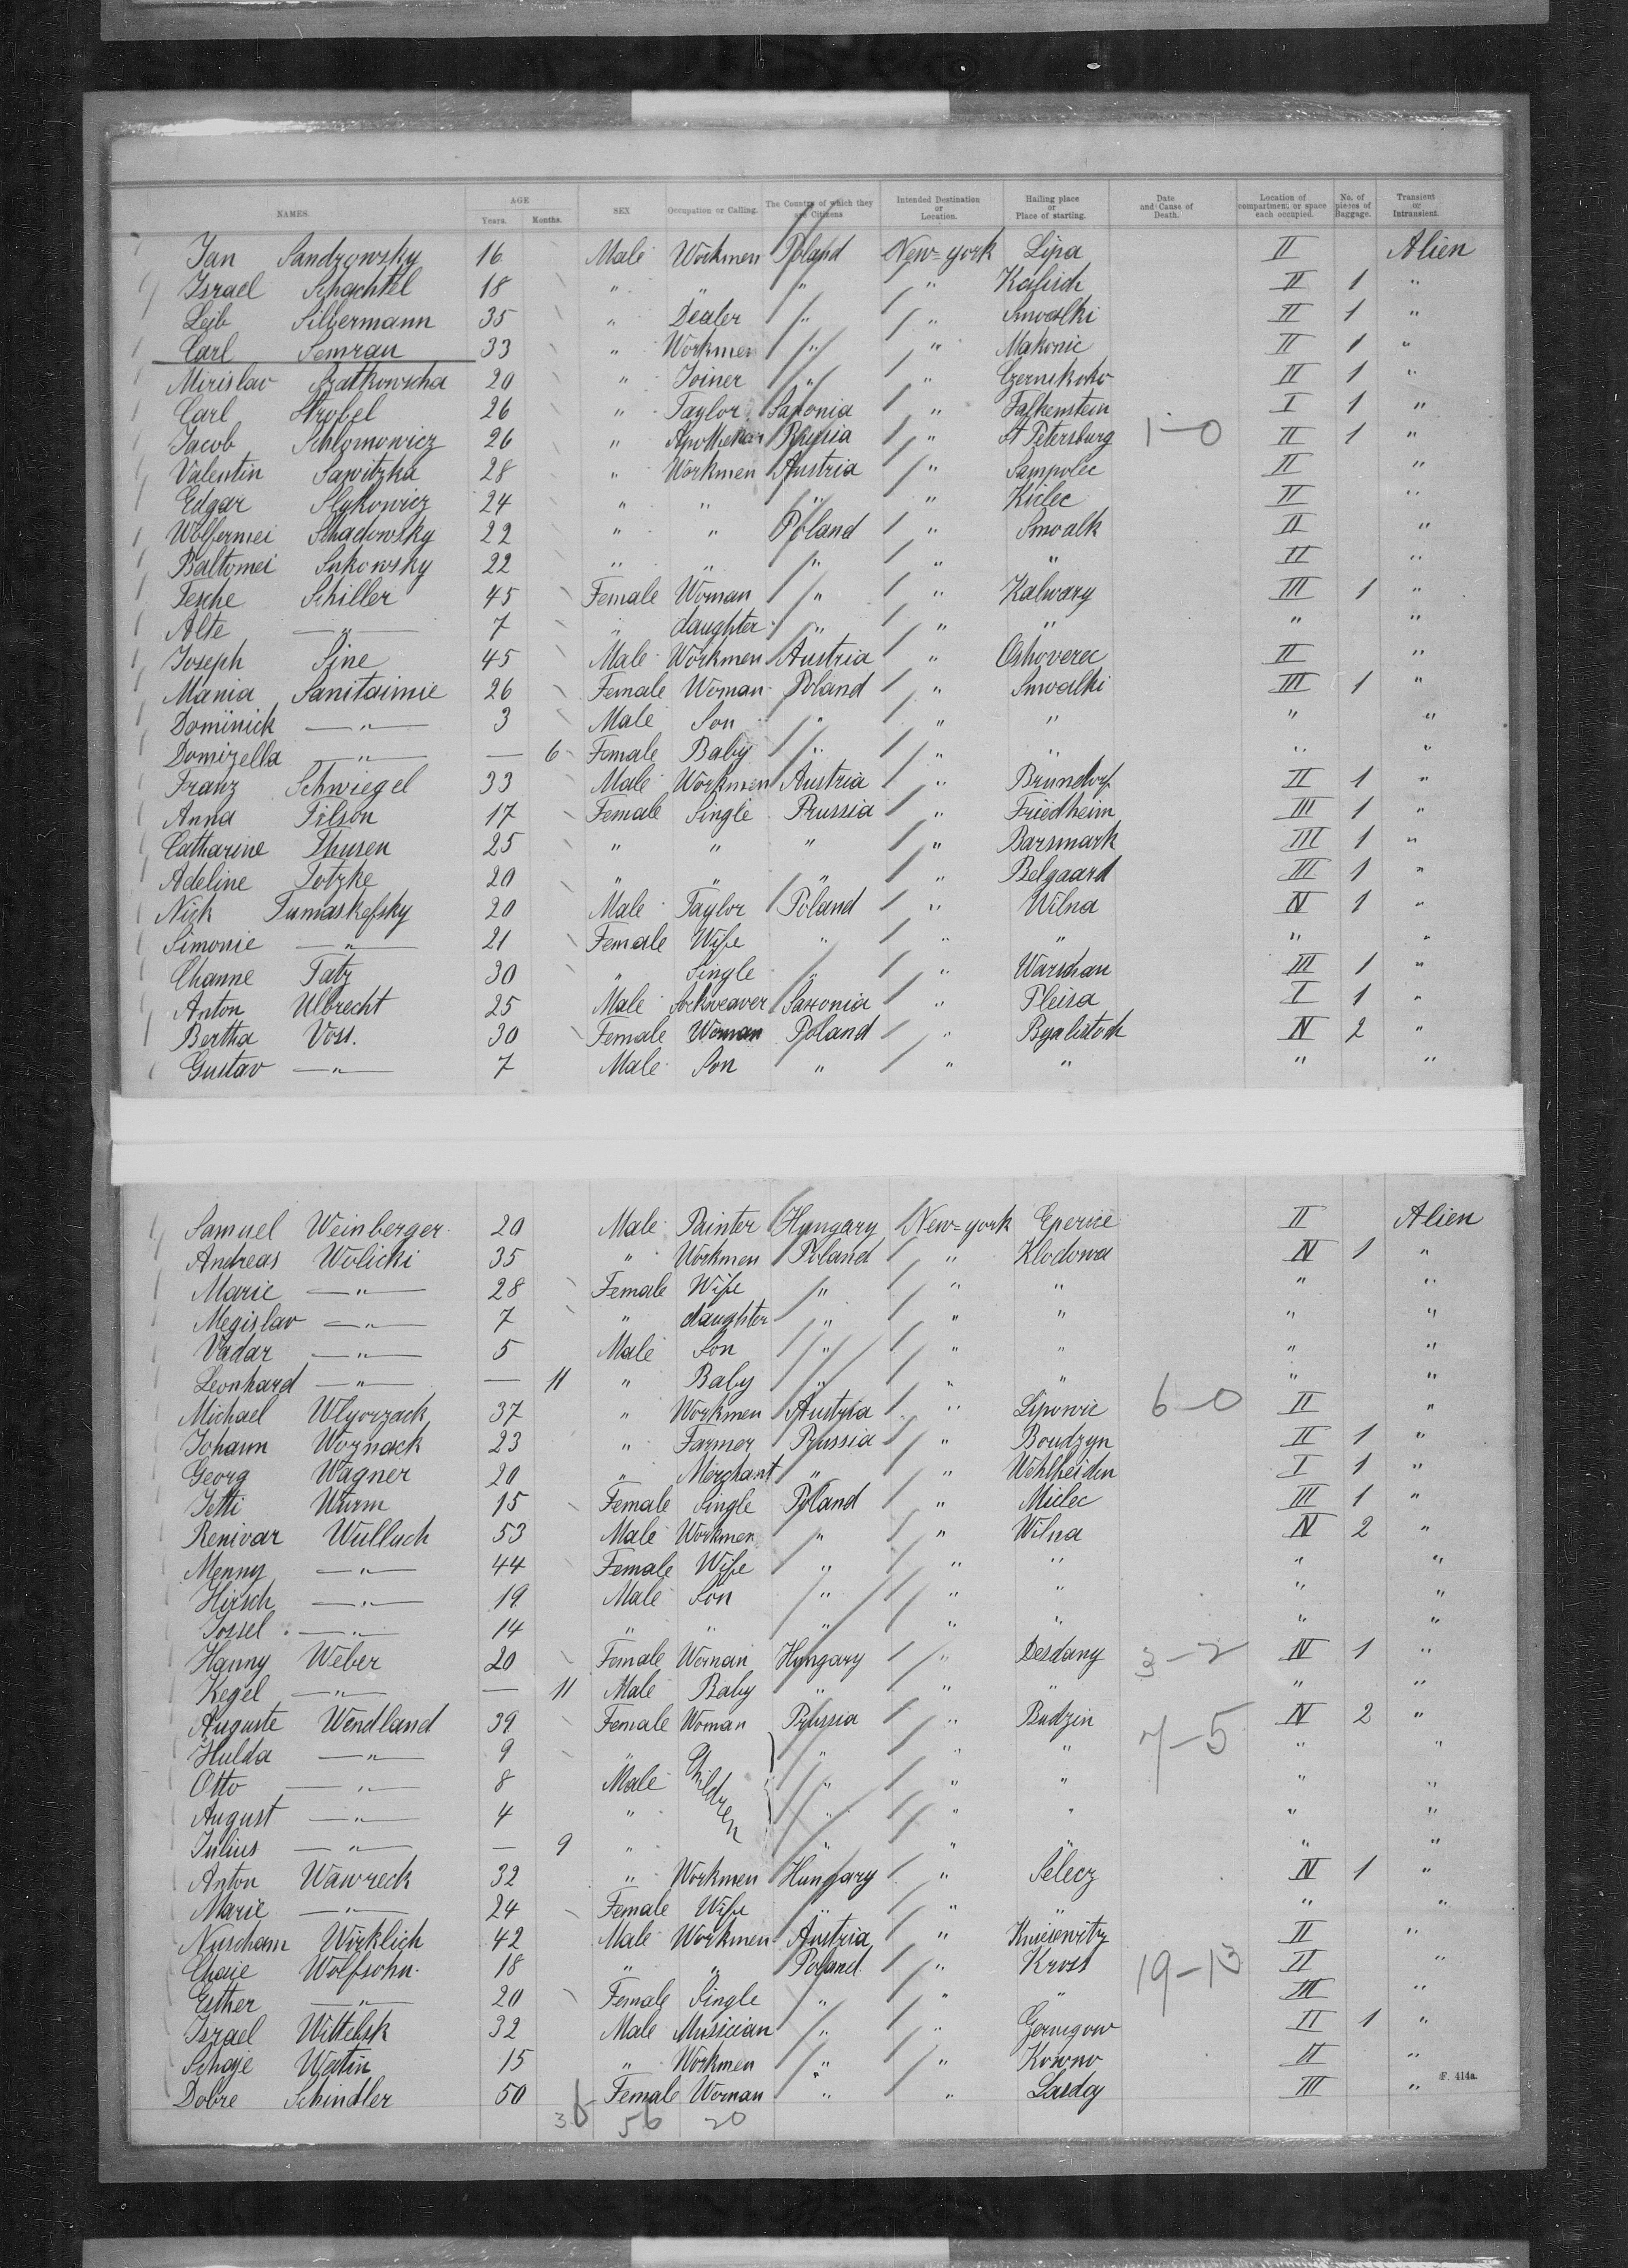 NAMES. AGE Years. Months. SEX Occupation or Calling. The Country of which they are Citizens Intended Destination or Location. Hailing place or Place of starting. Date and Cause of Death. Location of compartment or space each occupied. No. of pieces of Baggage. Transient or Intransient.
Jan Sandrowsky 16 Male Workmen Poland New=york Lipa II Alien
Israel Schachtel 18 " " " " Kalisch II 1 "
Leib Silbermann 35 " Dealer " " Suwalki II 1 "
Carl Semrau 33 " Workmen " " Makonie II 1 "
Mirislav 20 " Joiner " " II 1 "
Carl Strobel 26 " Taylor Saxonia " Falkenstein I 1 "
Jacob Schlomowicz 26 " Russia " St Petersburg 1-0 II 1 "
Valentin Sawitzka 28 " Workmen Austria " Sampolec II "
Edgar Slykowicz 24 " " " " Kielec II "
Wolfermei Schadowsky 22 " " Poland " Smoalk II "
Baltomei Sukowsky 22 " " " " " II "
Tesche Schiller 45 Female Woman " " Kalwary III 1 "
Alte " 7 " daughter " " " " "
Joseph Sine 45 Male Workmen Austria " Oshoverec II "
Mania Sanitaimie 26 Female Woman Poland " Suwalki III 1 "
Dominick " 3 Male Son " " " " "
Domizella " — 6 Female Baby " " " " "
Franz Schwiegel 33 Male Workmen Austria " Brundorf II 1 "
Anna Tilson 17 Female Single Prussia " Friedheim III 1 "
Catharine Thusen 25 " " " " Barsmark III 1 "
Adeline Totzke 20 " " " " Belgaard III 1 "
Nizk Tumaskefsky 20 Male Taylor Poland " Wilna IV 1 "
Simonie " 21 Female Wife " " " " "
Channe Tatz 30 " Single " " Warschau III 1 "
Anton Ulbrecht 25 Male Sockweaver Saxonia " Pleisa I 1 "
Bertha Voss. 30 Female Woman Poland " Byalistock IV 2 "
Gustav " 7 Male Son " " " " "
Samuel Weinberger 20 Male Painter Hungary New=york Eperice II Alien
Andreas Wolicki 35 " Workmen Poland " Klodowa IV 1 "
Marie " 28 Female Wife " " " " "
Megislav " 7 " daughter " " " " "
Vadar " 5 Male Son " " " " "
Leonhard " — 11 " Baby " " " " "
Michael Wlyorzack 37 " Workmen Austria " Lipowic 6-0 II "
Johann Woznack 23 " Farmer Prussia " Boudzyn II 1 "
Georg Wagner 20 " Merchant " " Wehlheiden I 1 "
Jetti Wurm 15 Female Single Poland " Mielec III 1 "
Renivar Wulluch 53 Male Workmen " " Wilna IV 2 "
Menny " 44 Female Wife " " " " "
Hirsch " 19 Male Son " " " " "
Jossel " 14 " " " " " " "
Hanny Weber 20 Female Woman Hungary " Desdany 3-2 IV 1 "
Kegel " — 11 Male Baby " " " " "
Auguste Wendland 39 Female Woman Prussia " Budzin 7-5 IV 2 "
Hulda " 9 " Children " " " " "
Otto " 8 Male " " " " "
August " 4 " " " " " "
Julius " — 9 " " " " " "
Anton Wawreck 32 " Workmen Hungary " Selecz IV 1 "
Marie " 24 Female Wife " " " " "
Nuscham Wirklich 42 Male Workmen Austria " Kniesewitz II "
Chaie Wolfsohn 18 " " Poland " Kross 19-13 II "
Esther " 20 Female Single " " " III "
Israel Wittelsk 32 Male Musician " " II 1 "
Schaje Westin 15 " Workmen " " Kowno II "
Dobre Schindler 50 Female Woman " " Lasdey III "
F. 414a.
36 56 20